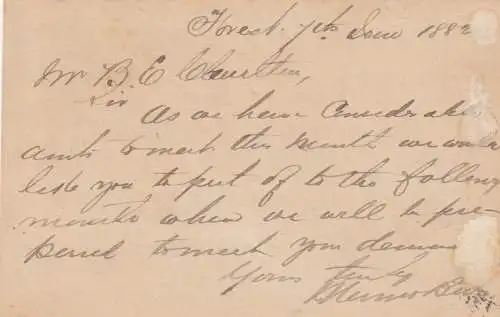 Forest 7th June 1882
Mr B. E. Charlton,
Sir
As we have Considerable
amts to meet this Month we would
like you to put of to the following
months when we will be pre-
pared to meet your demand
Yours truly